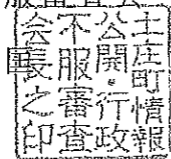 土庄町情報
公開・行政
不服審査
会長之印